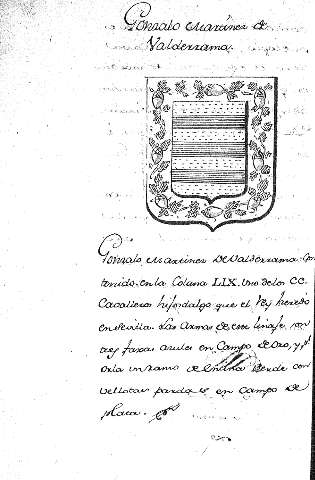 Gonzalo Martinez de
Valderrama.
Gonzalo Martinez De Valderrama. Con
tenido en la Coluna LIX. Uno delos CC.
Cavalleros hijosdalgo que el Rey heredo
en Sevilla. Las Armas de este linaje, son
tres faxas azules en Campo de Oro, y pr.
Orla un ramo de Encina Verde con
vellotas pardas en Campo de
plata.